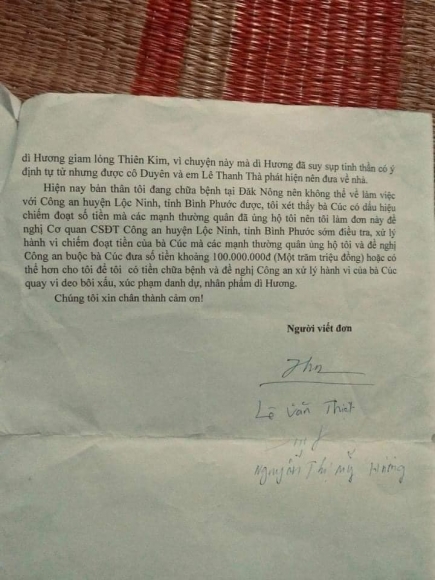 dì Hương giam lỏng Thiên Kim, vì chuyện này mà dì Hương đã suy sụp tinh thần có ý
định tự tử nhưng được cô Duyên và em Lê Thanh Thà phát hiện nên đưa về nhà.
Hiện nay bản thân tôi đang chữa bệnh tại Đăk Nông nên không thể về làm việc
với Công an huyện Lộc Ninh, tỉnh Bình Phước được, tôi xét thấy bà Cúc có dấu hiệu
chiếm đoạt số tiền mà các mạnh thường quân đã ủng hộ tôi nên tôi làm đơn này đề
nghị Cơ quan CSĐT Công an huyện Lộc Ninh, tỉnh Bình Phước sớm điều tra, xử lý
hành vi chiếm đoạt tiền của bà Cúc mà các mạnh thường quân ủng hộ tôi và đề nghị
Công an buộc bà Cúc đưa số tiền khoảng 100.000.000đ (Một trăm triệu đồng) hoặc có
thể hơn cho tôi để tôi có tiền chữa bệnh và đề nghị Công an xử lý hành vi của bà Cúc
quay vi deo bôi xấu, xúc phạm danh dự, nhân phẩm dì Hương.
Chúng tôi xin chân thành cảm ơn!
Người viết đơn
Lê Văn
Nguyễn Thị Mỹ Hương